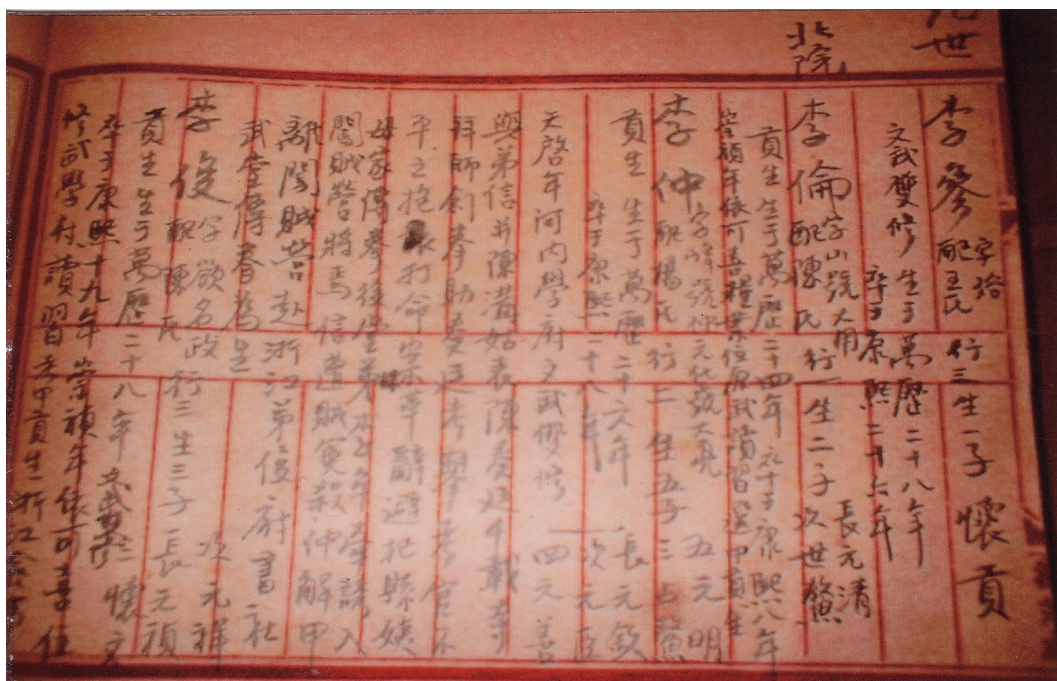 九世
北院
李參 字裕 配王氏 行三 生一子 懷貢
文武雙修 生于萬歷二十八年
卒于康熙二十六年
李倫 字山號大用 配陳氏 行一 生二子 長元清 次世鰲
貢生 生于萬歷二十四年 卒于康熙八年
崇禎年依可喜 任原武 讀習選中貢生
李仲 字峰號 元 號大亮 配楊氏 行二 生五子 三占鰲 五元明
貢生 生于萬歷二十六年 長元欽
卒于康熙二十八年 次元臣
天啓年河內學府文武雙修 四元善
與弟信并陳溝姑表陳奏廷千載寺
拜師劍拳助奏廷考舉考官不
平之抱 打命案 辭避杞縣姨
母家傳拳後 弟 年牽誘入
闖賊營將焉 信遭賊冤殺 仲解甲
離闖賊營赴浙江弟俊府書社
武堂傳春為生
李俊 字欲名政 配陳氏 行三 生三子 長元禎 次元祥
貢生 生于萬歷二十八年 三懷
卒于康熙十九年 崇禎年依可喜任
修武學村讀習 考中貢生 浙江